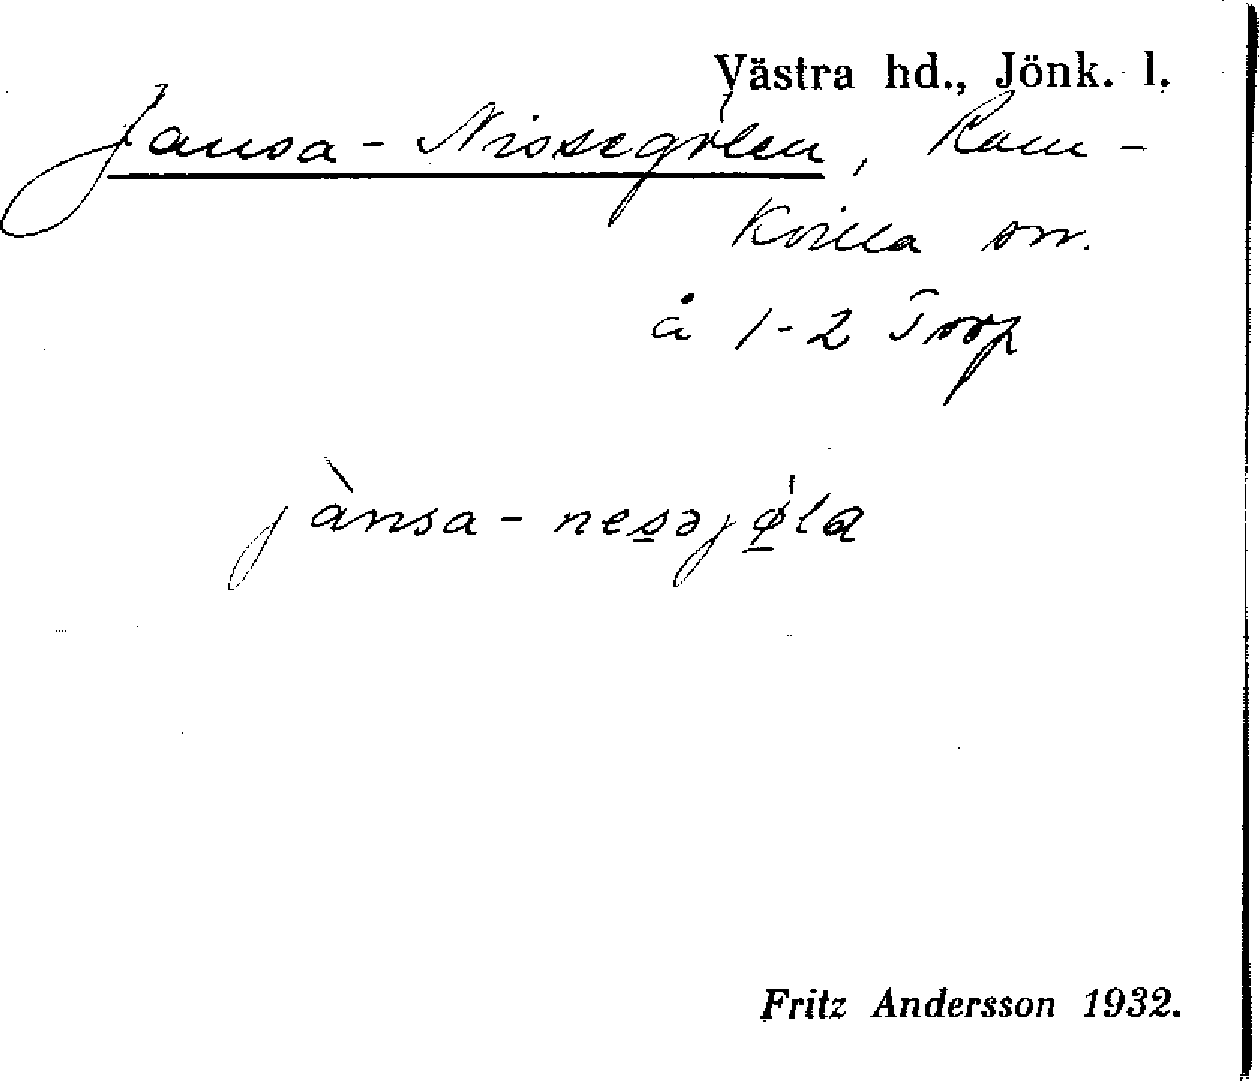 Västra hd., Jönk. l.
Jansa-Nissegölen, Ram-
kvilla sn.
å 1-2 Torp
jànsa-nesəjøla
Fritz Andersson 1932.